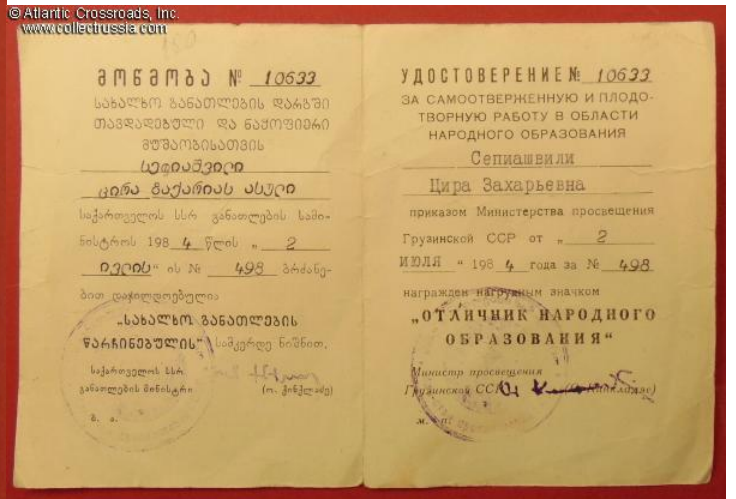 © Atlantic Crossroads, Inc.
www.collectrussia.com
მოწმობა № 10633
სახალხო განათლების დარგში
თავდადებული და ნაყოფიერი
მუშაობისათვის
სეფიაშვილი
ცირა ზაქარიას ასული
საქართველოს სსრ განათლების სამი-
ნისტროს 1984 წლის „ 2
ივლის“ ის № 498 ბრძანე-
ბით დაჯილდოებულია
„სახალხო განათლების
წარჩინებულის“ სამკერდე ნიშნით.
საქართველოს სსრ
განათლების მინისტრი (ო. ქინქლაძე)
ბ. ა.
УДОСТОВЕРЕНИЕ № 10633
ЗА САМООТВЕРЖЕННУЮ И ПЛОДО-
ТВОРНУЮ РАБОТУ В ОБЛАСТИ
НАРОДНОГО ОБРАЗОВАНИЯ
Сепиашвили
Цира Захарьевна
приказом Министерства просвещения
Грузинской ССР от „ 2
ИЮЛЯ “ 1984 года за № 498
награжден нагрудным значком
„ОТЛИЧНИК НАРОДНОГО
ОБРАЗОВАНИЯ“
Министр просвещения
Грузинской ССР (О. Кинкладзе)
м. п.